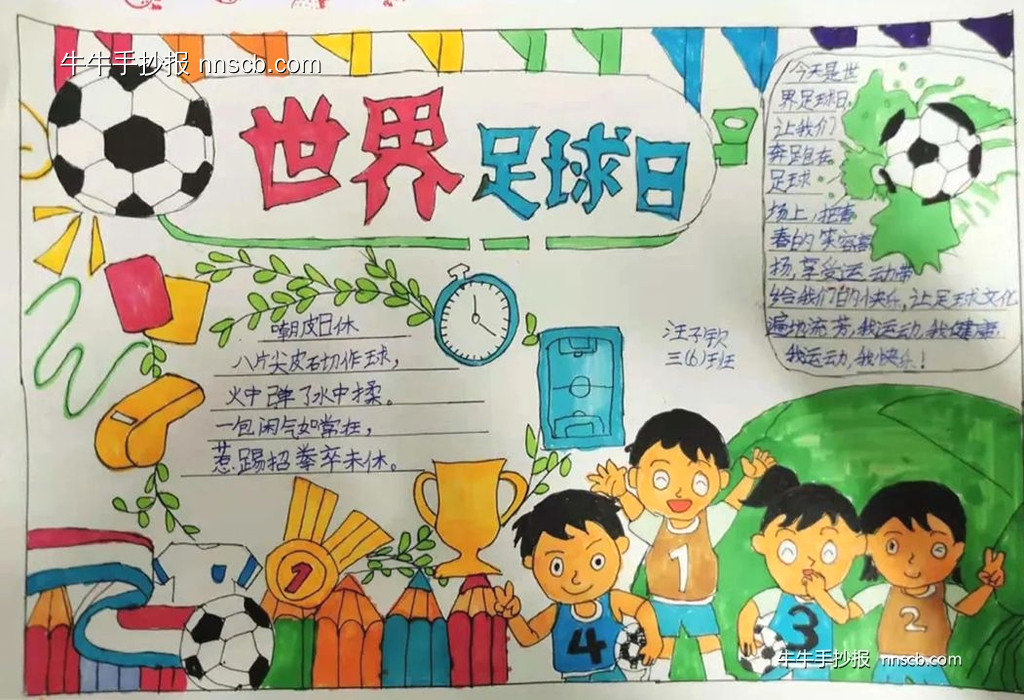 牛牛手抄报 nnscb.com
世界足球日
今天是世
界足球日。
让我们
奔跑在
足球
场上,把青
春的笑容
扬,享受运动带
给我们的快乐,让足球文化
遍地流芳,我运动,我健康
我运动,我快乐!
嘲皮日休
八片尖皮砌作球,
火中燖了水中揉。
一包闲气如常在,
惹踢招拳卒未休。
汪子钦
三(6)班
1
1
4
3
2
牛牛手抄报 nnscb.com